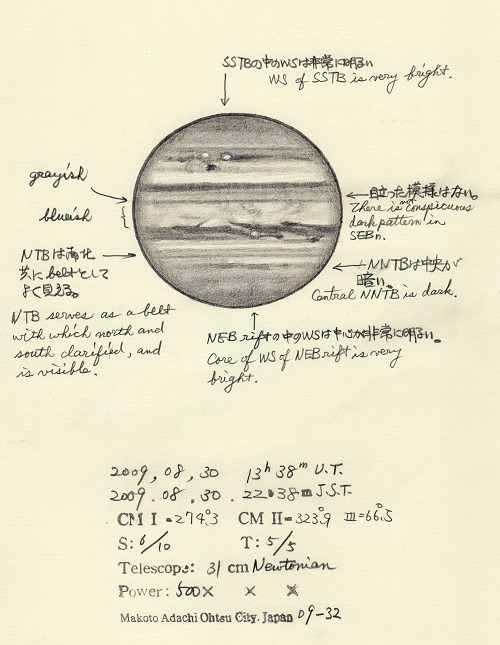 SSTBの中のWSは非常に明るい
WS of SSTB is very bright.
grayish
blueish
目立った模様はない。
There is not conspicuous
dark pattern in
SEBn.
NTBは南北
共にbeltとして
よく見える。
NTB serves as a belt
with which north and
south clarified, and
is visible.
NNTBは中央が
暗い。
Central NNTB is dark.
NEB riftの中のWSは中心が非常に明るい。
Core of WS of NEB rift is very
bright.
2009, 08, 30 13h 38m U.T.
2009. 08. 30. 22h 38m J.S.T.
CM I = 274.°3 CM II = 323.°9 III = 66.°5
S: 6/10 T: 5/5
Telescope: 31 cm Newtonian
Power: 500× × ×
Makoto Adachi Ohtsu City. Japan 09-32